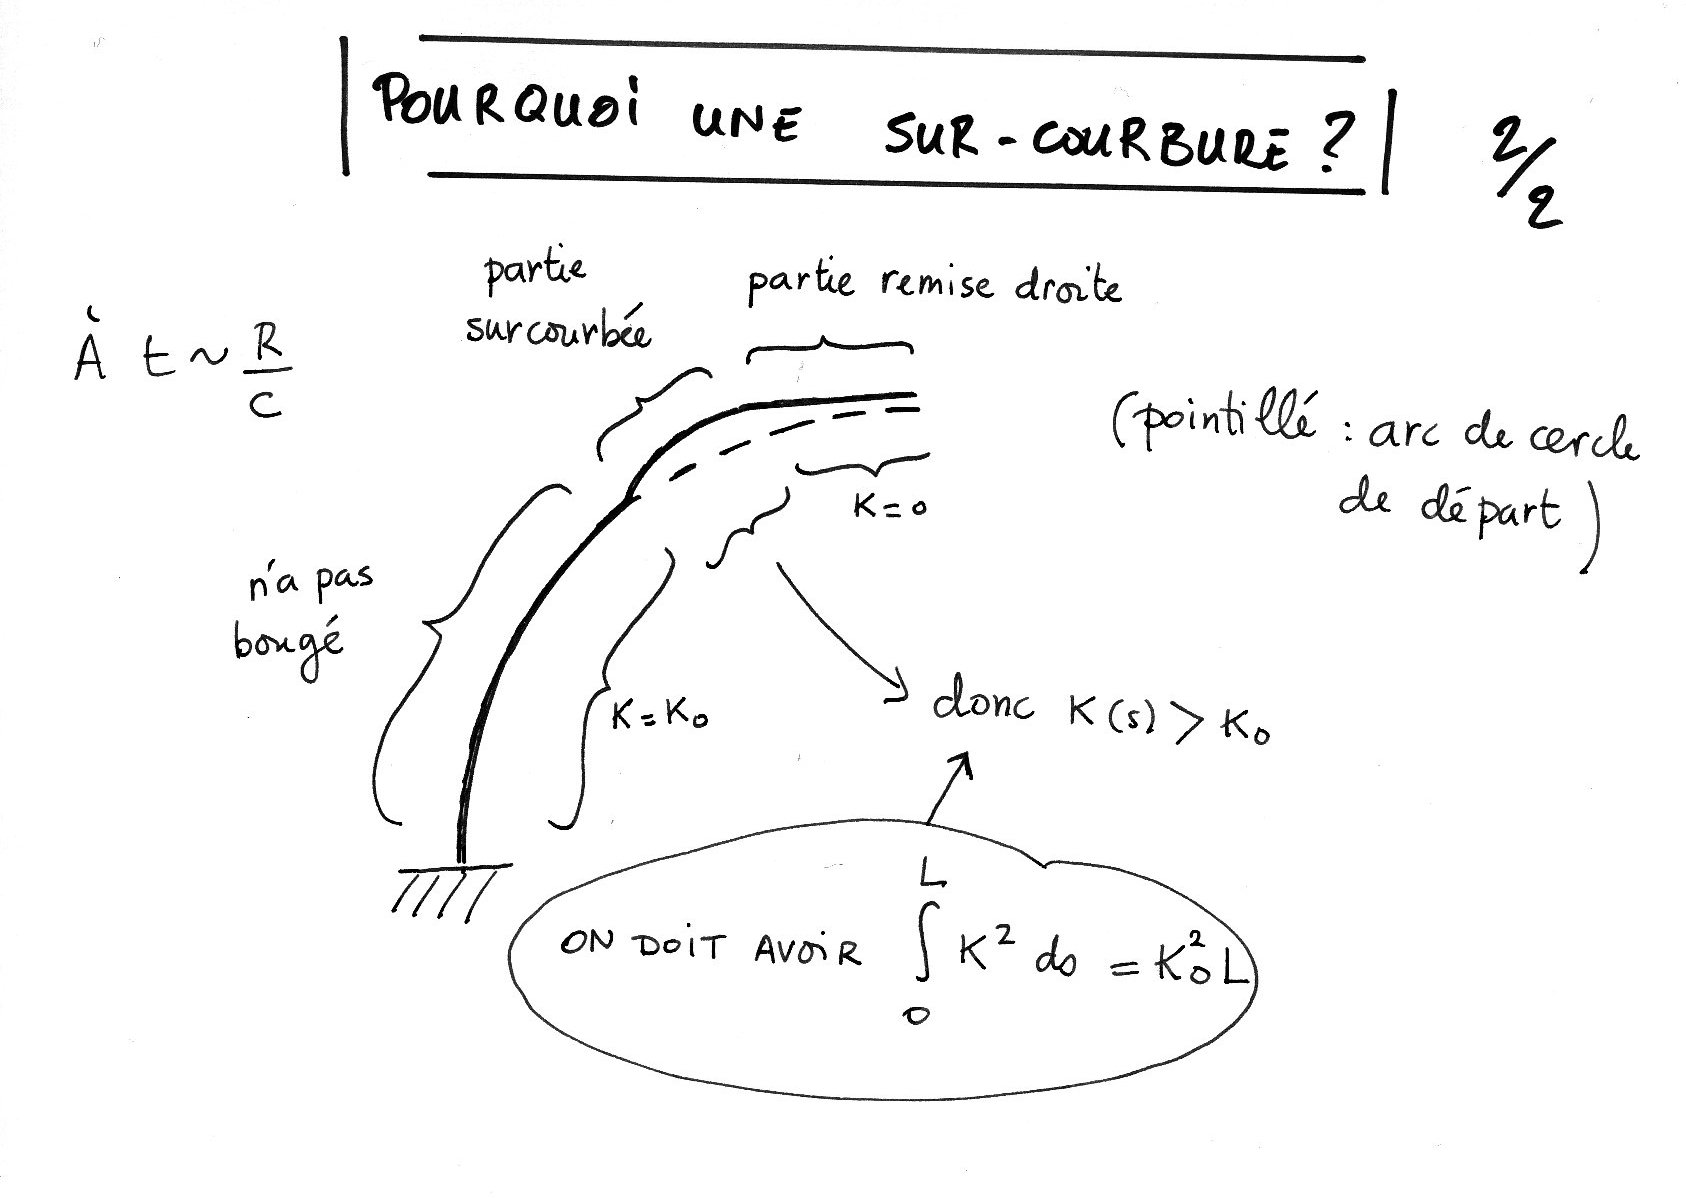 POURQUOI UNE SUR-COURBURE ?
2/2
partie
surcourbée
partie remise droite
À t ~ R/c
(pointillé : arc de cercle
de départ)
K = 0
n'a pas
bougé
K = K₀
donc K(s) > K₀
ON DOIT AVOIR ∫₀ᴸ K² ds = K₀² L